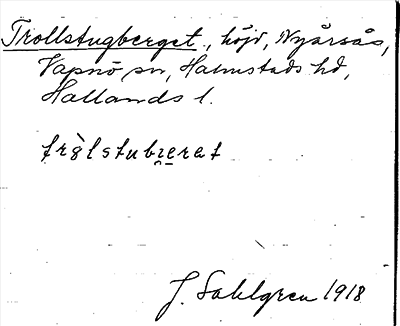 Trollstugberget, höjd, Nyårsås,
Vapnö sn, Halmstads hd,
Hallands l.
trὰlstubi̯e̯rət
J. Sahlgren 1918